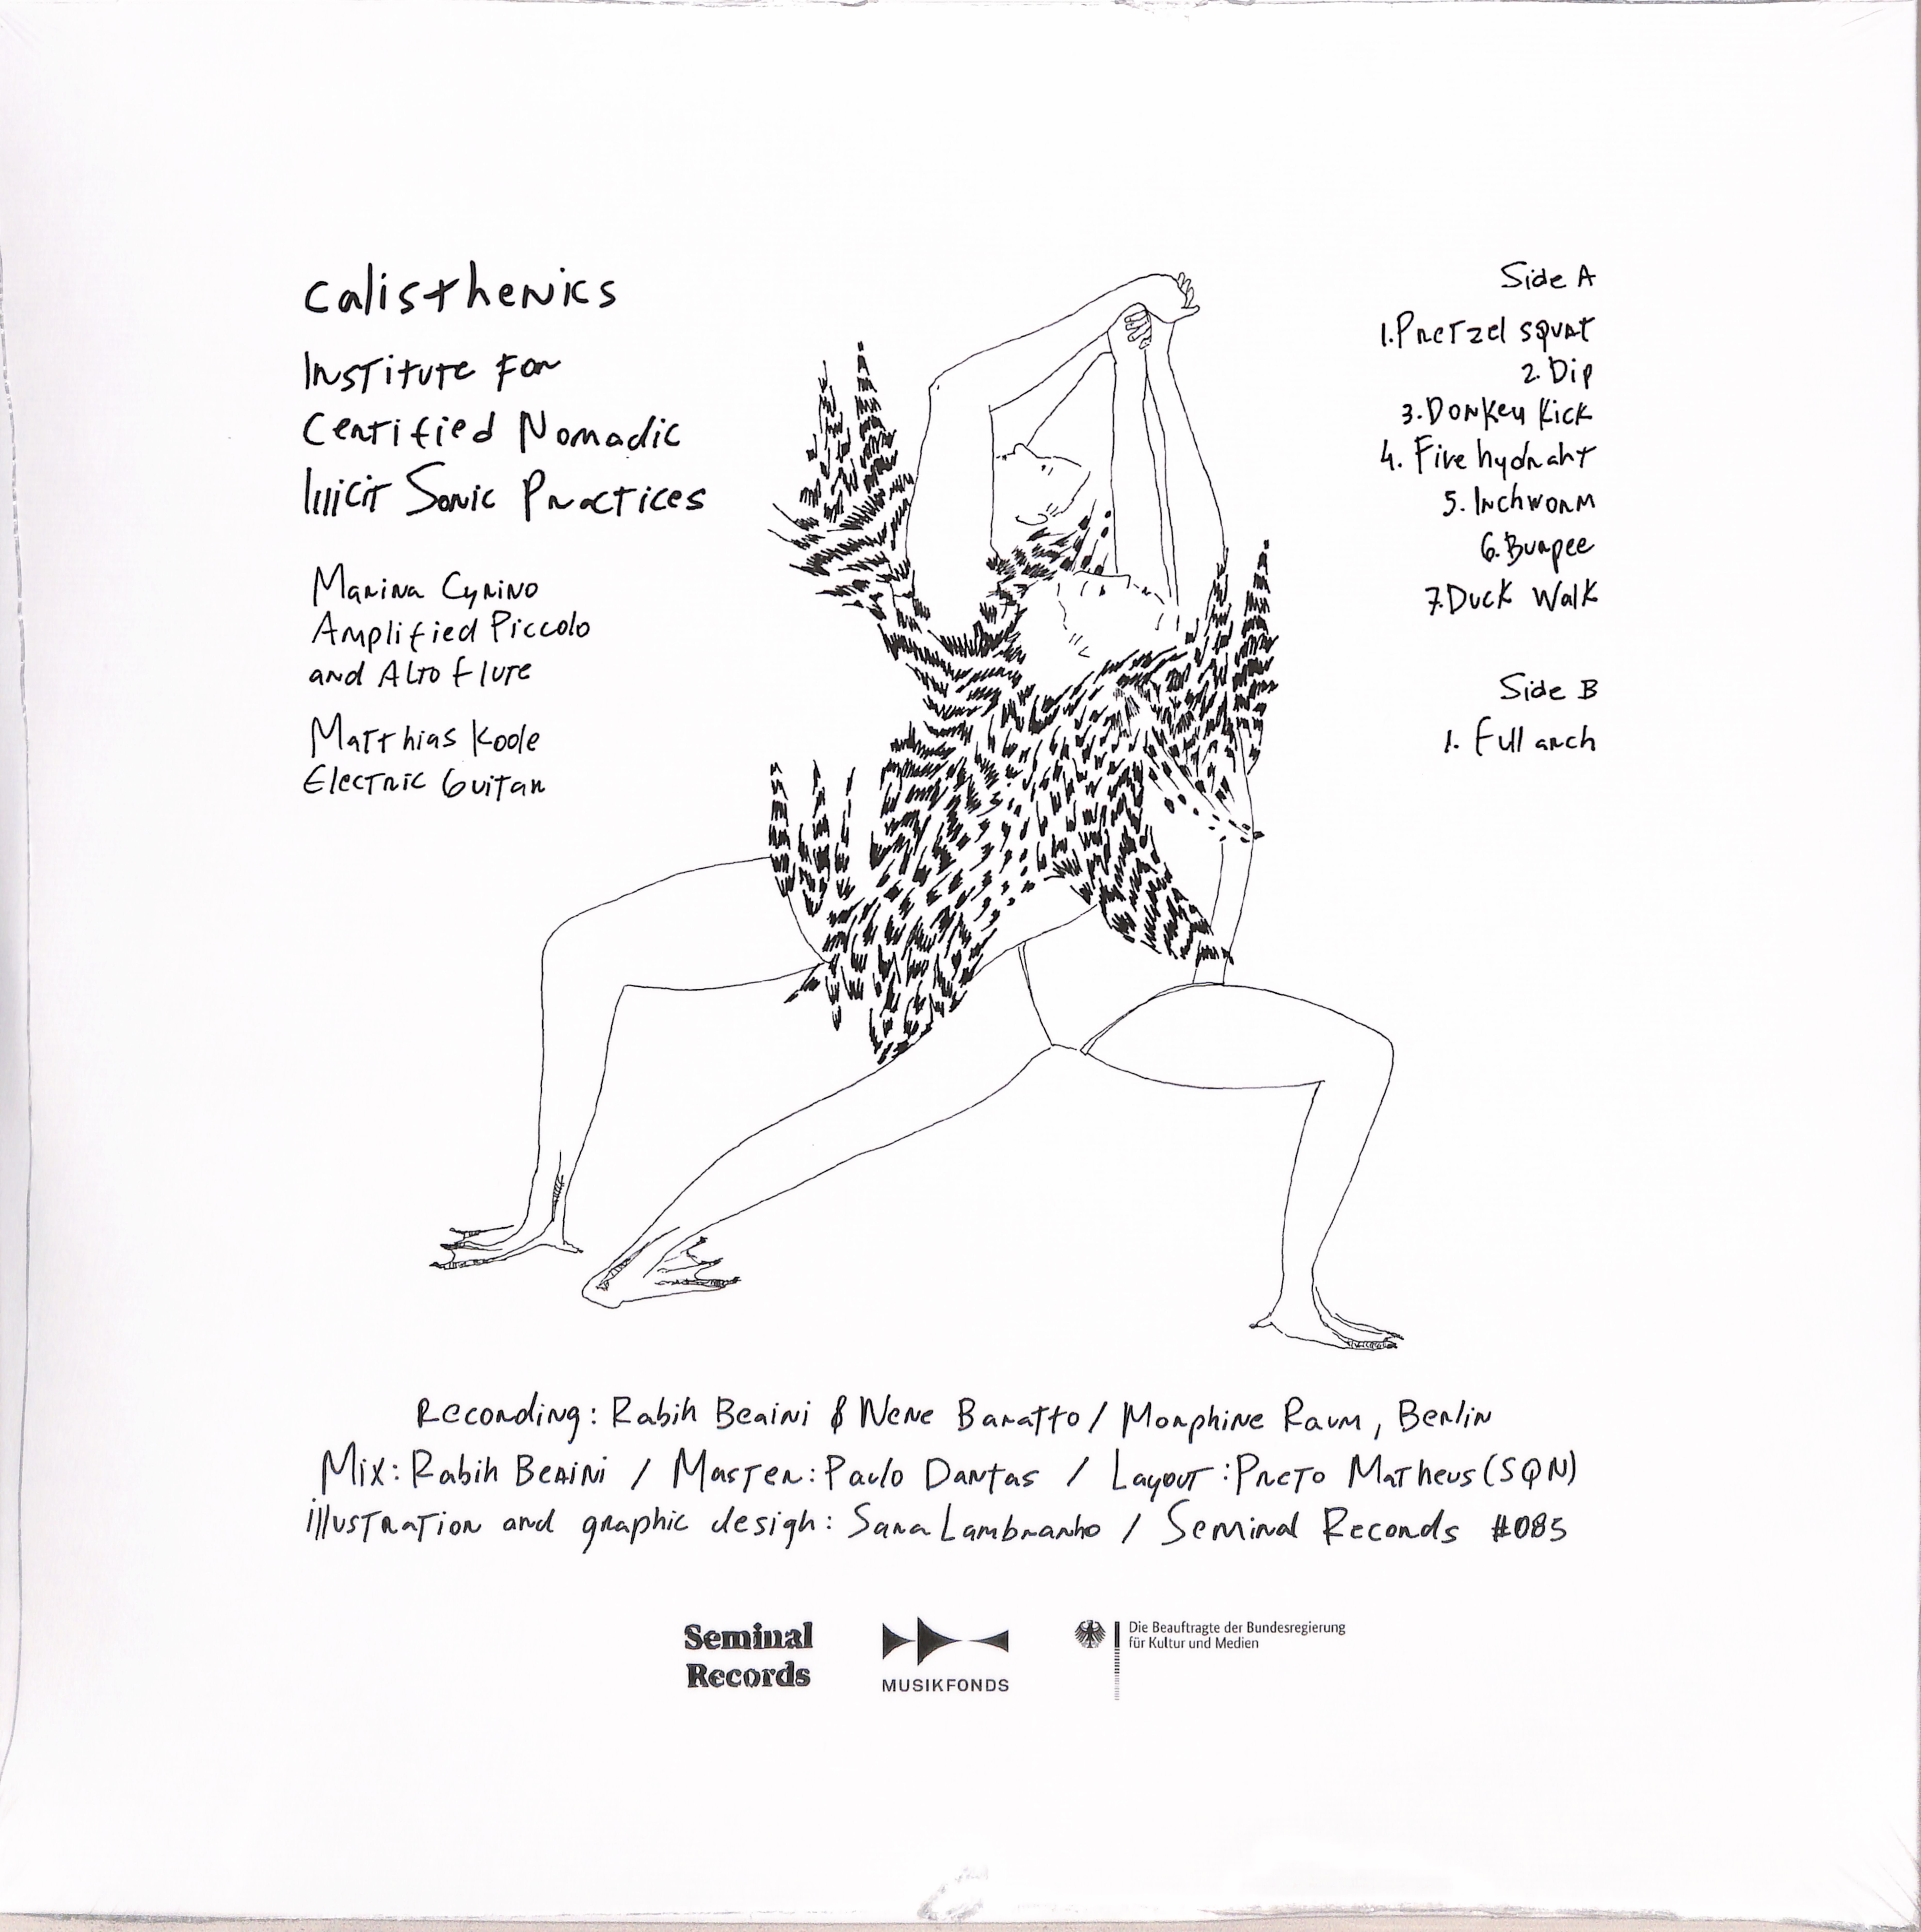 Calisthenics
Institute for
Certified Nomadic
Illicit Sonic Practices
Marina Cyrino
Amplified Piccolo
and Alto flute
Matthias Koole
Electric Guitar
Side A
1. Pretzel squat
2. Dip
3. Donkey Kick
4. Fire hydrant
5. Inchworm
6. Burpee
7. Duck Walk
Side B
1. Full arch
Recording: Rabih Beaini & Nene Baratto / Morphine Raum, Berlin
Mix: Rabih Beaini / Master: Paulo Dantas / Layout: Preto Matheus (SQN)
illustration and graphic design: Sara Lambranho / Seminal Records #085
Seminal
Records
MUSIKFONDS
Die Beauftragte der Bundesregierung
für Kultur und Medien